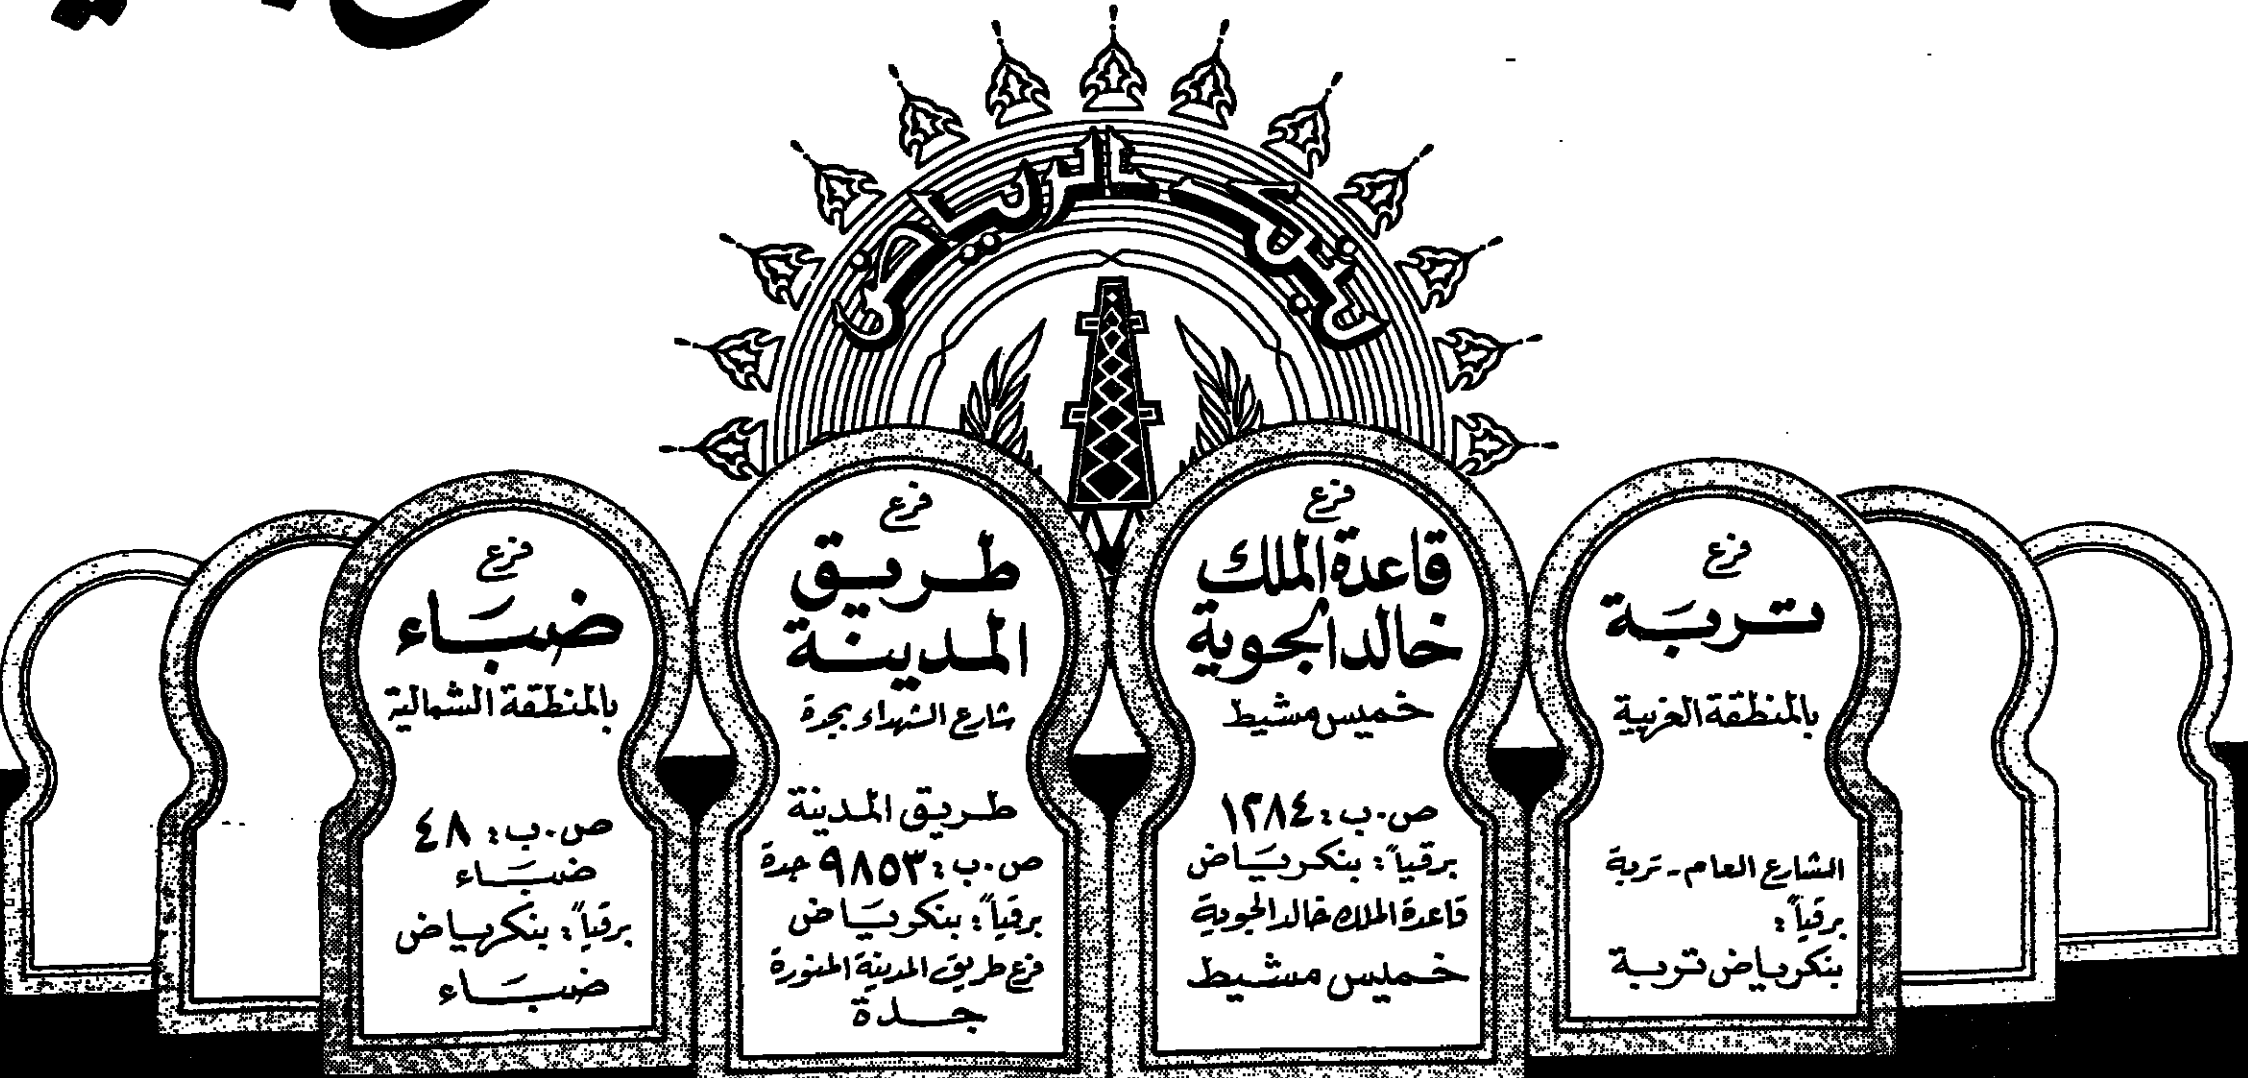 بنك الرياض
فرع
تربة
بالمنطقة الغربية
الشارع العام - تربة
برقياً:
بنكرياض تربة
فرع
قاعدة الملك
خالد الجوية
خميس مشيط
ص.ب: ١٣٨٤
برقياً: بنكرياض
قاعدة الملك خالد الجوية
خميس مشيط
فرع
طريق
المدينة
شارع الشهداء بجدة
طريق المدينة
ص.ب: ٩٨٥٣ جدة
برقياً: بنكرياض
فرع طريق المدينة المنورة
جدة
فرع
ضباء
بالمنطقة الشمالية
ص.ب: ٤٨
ضباء
برقياً: بنكرياض
ضباء